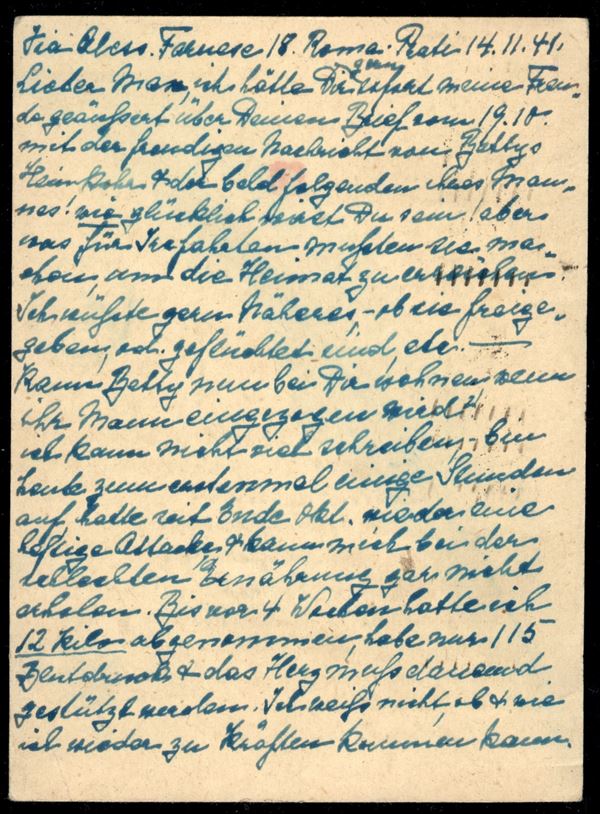 Via Aless. Farnese 18. Roma. Prati 14.11.41.
Lieber Max, ich hätte Dir gern sofort meine Freu-
de geäussert über Deinen Brief vom 19.10.
mit der freudigen Nachricht von Bettys
Heimkehr & der bald folgenden ihres Man-
nes! wie glücklich wirst Du sein! aber
was für Irrfahrten mussten sie ma-
chen, um die Heimat zu erreichen!
Ich wüsste gern Näheres, - ob sie freige-
geben, od. geflüchtet sind, etc. —
Kann Betty nun bei Dir wohnen wenn
ihr Mann eingezogen wird?
ich kann nicht viel schreiben, - bin
heute zum erstenmal einige Stunden
auf, hatte seit Ende Okt. wieder eine
heftige Attacke, & kann mich bei der
schlechten Ernährung gar nicht
erholen. Bis vor 4 Wochen hatte ich
12 Kilo abgenommen, habe nur 115
Blutdruck & das Herz muss dauernd
gestützt werden. Ich weiss nicht, ob & wie
ich wieder zu Kräften kommen kann.